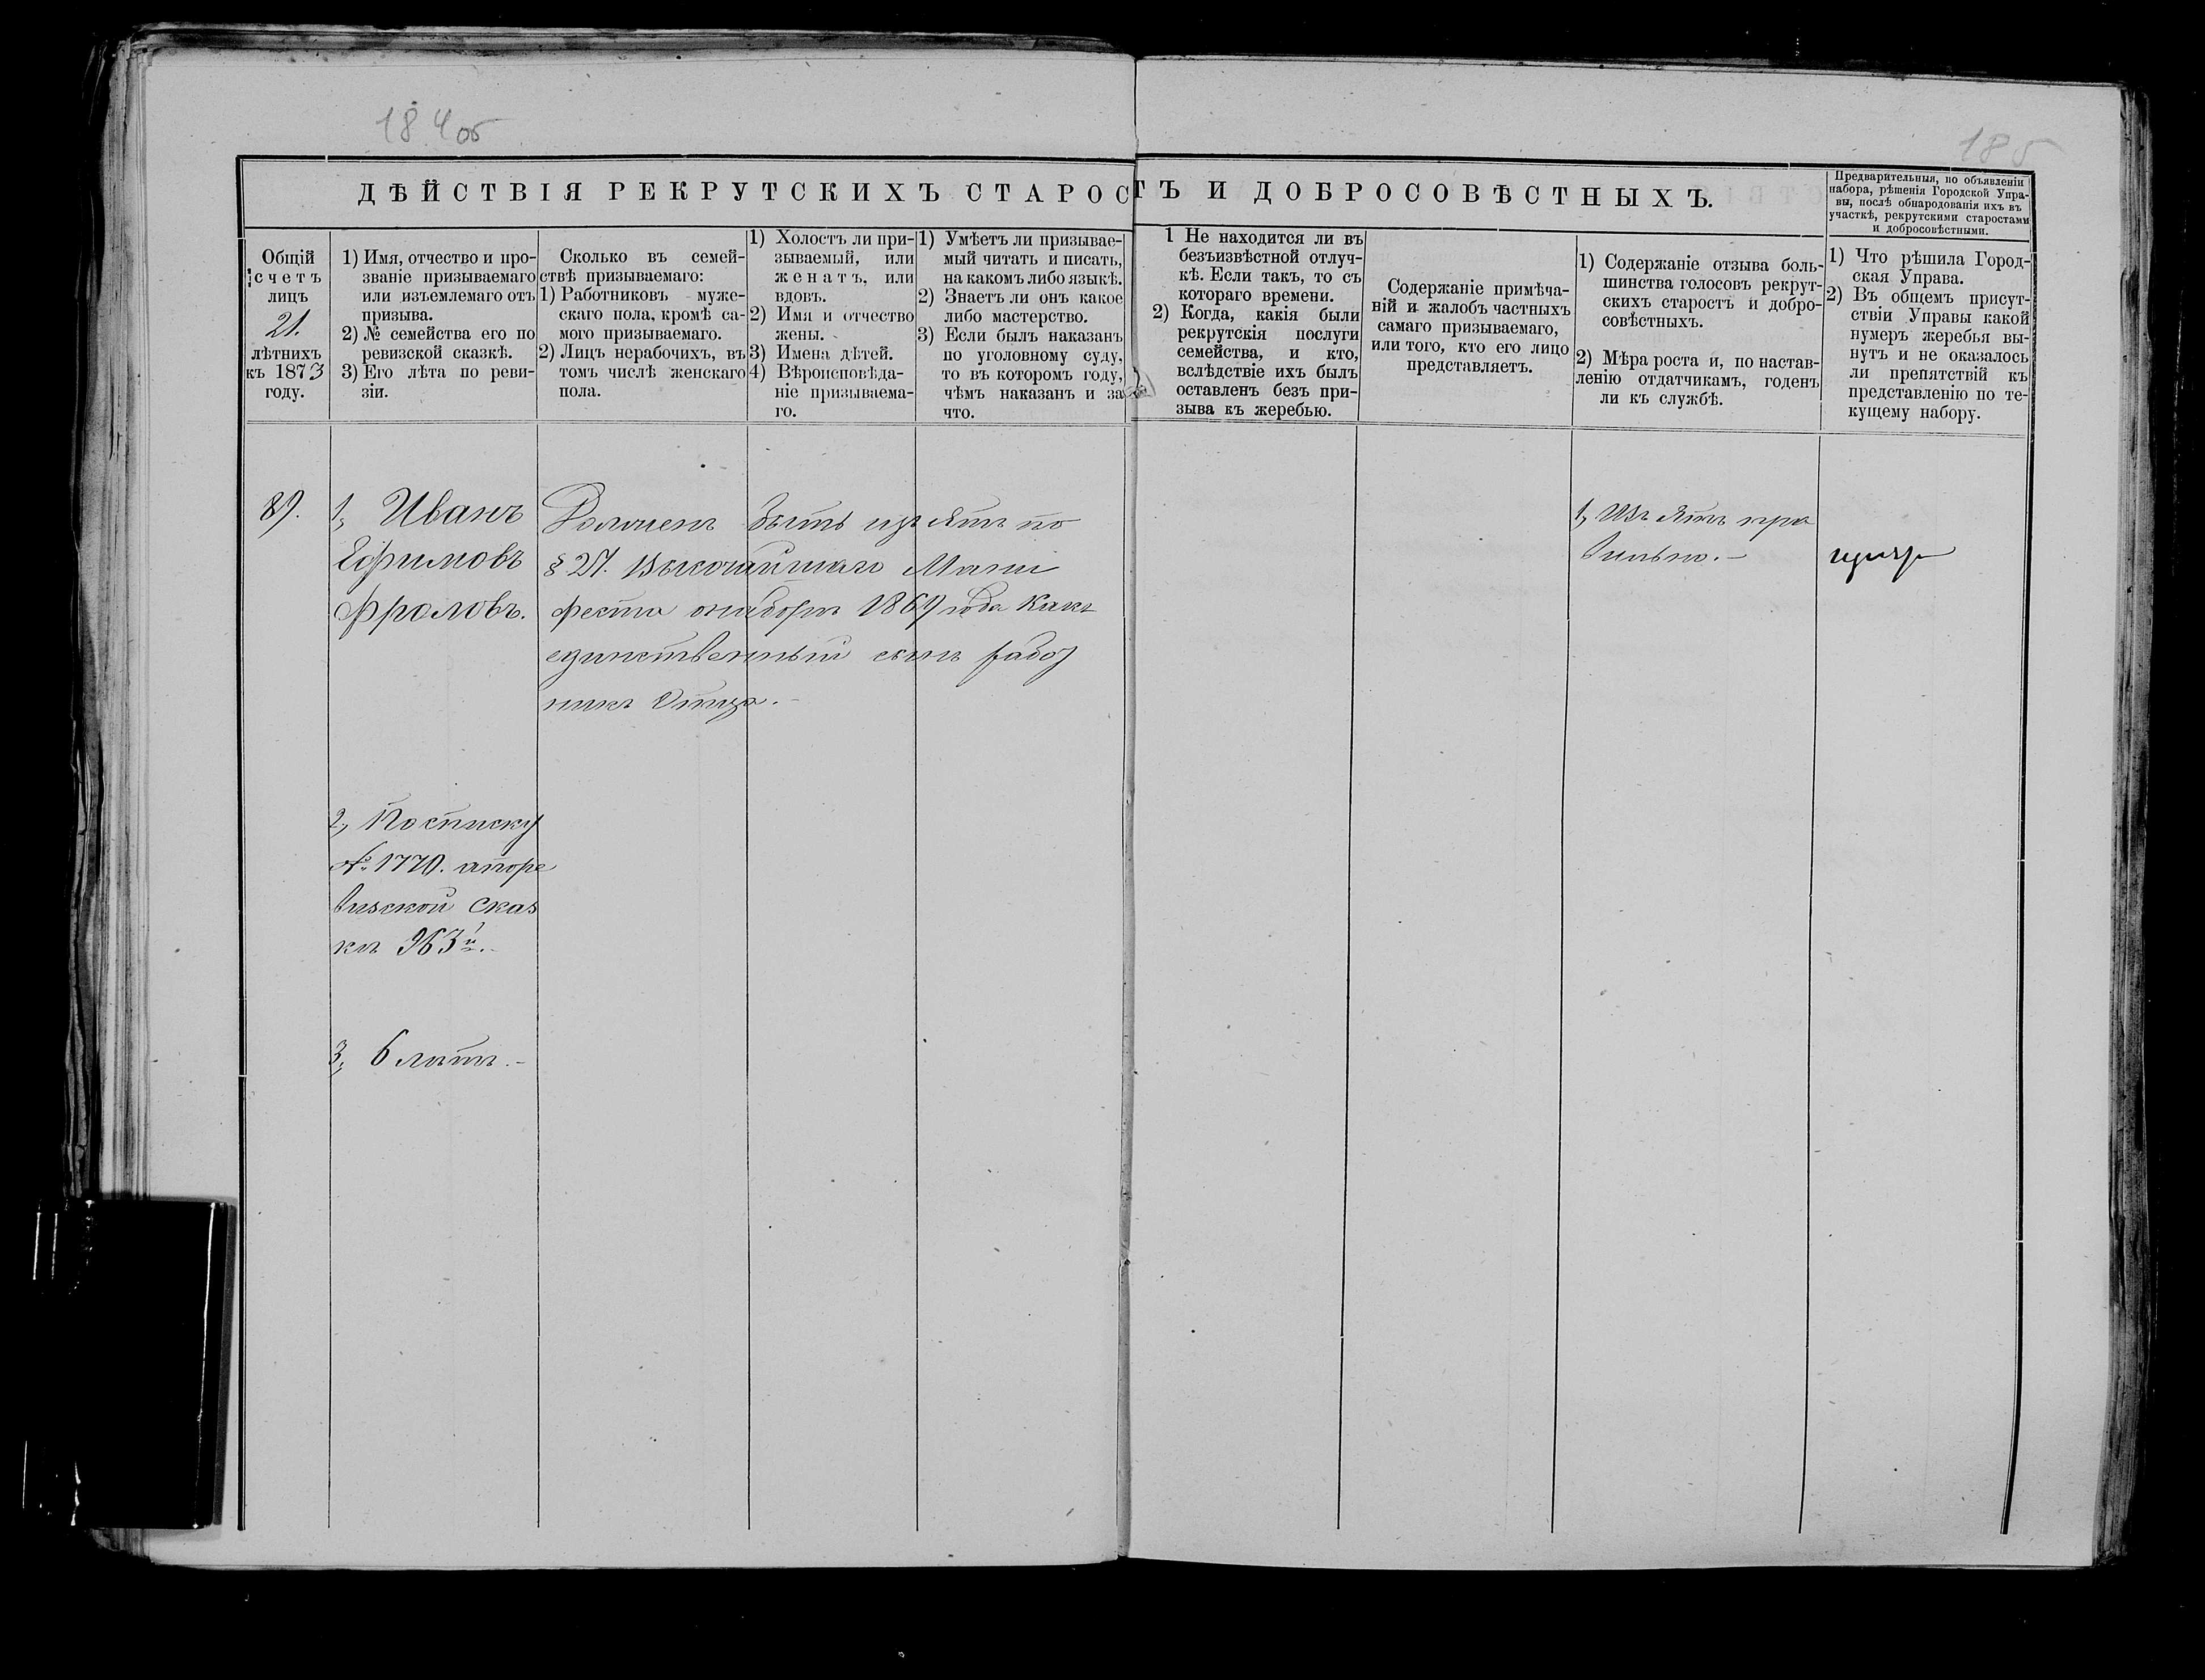 184об
185
ДѢЙСТВІЯ РЕКРУТСКИХЪ СТАРОСТЪ И ДОБРОСОВѢСТНЫХЪ.
Предварительныя, по объявленіи
набора, рѣшенія Городской Упра-
вы, послѣ обнародованія ихъ въ
участкѣ, рекрутскими старостами
и добросовѣстными.
Общій
счетъ
лицъ
21.
лѣтнихъ
къ 1873
году.
1) Имя, отчество и про-
званіе призываемаго
или изъемлемаго отъ
призыва.
2) № семейства его по
ревизской сказкѣ.
3) Его лѣта по реви-
зіи.
Сколько въ семей-
ствѣ призываемаго:
1) Работниковъ муже-
скаго пола, кромѣ са-
мого призываемаго.
2) Лицъ нерабочихъ, въ
томъ числѣ женскаго
пола.
1) Холостъ ли при-
зываемый, или
женатъ, или
вдовъ.
2) Имя и отчество
жены.
3) Имена дѣтей.
4) Вѣроисповѣда-
ніе призываема-
го.
1) Умѣетъ ли призывае-
мый читать и писать,
на какомъ либо языкѣ.
2) Знаетъ ли онъ какое
либо мастерство.
3) Если былъ наказанъ
по уголовному суду,
то въ которомъ году,
чѣмъ наказанъ и за
что.
1 Не находится ли въ
безъизвѣстной отлуч-
кѣ. Если такъ, то съ
котораго времени.
2) Когда, какія были
рекрутскія послуги
семейства, и кто,
вслѣдствіе ихъ былъ
оставленъ безъ при-
зыва къ жеребью.
Содержаніе примѣча-
ній и жалобъ частныхъ
самаго призываемаго,
или того, кто его лицо
представляетъ.
1) Содержаніе отзыва боль-
шинства голосовъ рекрут-
скихъ старостъ и добро-
совѣстныхъ.
2) Мѣра роста и, по настав-
ленію отдатчикамъ, годенъ
ли къ службѣ.
1) Что рѣшила Город-
ская Управа.
2) Въ общемъ присут-
ствіи Управы какой
нумеръ жеребья вы-
нутъ и не оказалось
ли препятствій къ
представленію по те-
кущему набору.
89.
1, Иванъ
Ефимовъ
Фроловъ.
2, По списку
№ 1770. а по ре
визской сказ
кѣ 963й.
3, 6 лѣтъ.
Долженъ быть изъятъ по
§ 27. Высочайшаго Мани
феста о наборѣ 1869 года какъ
единственный сынъ работ
никъ Отца.
1, Изъятъ пра
вильно.